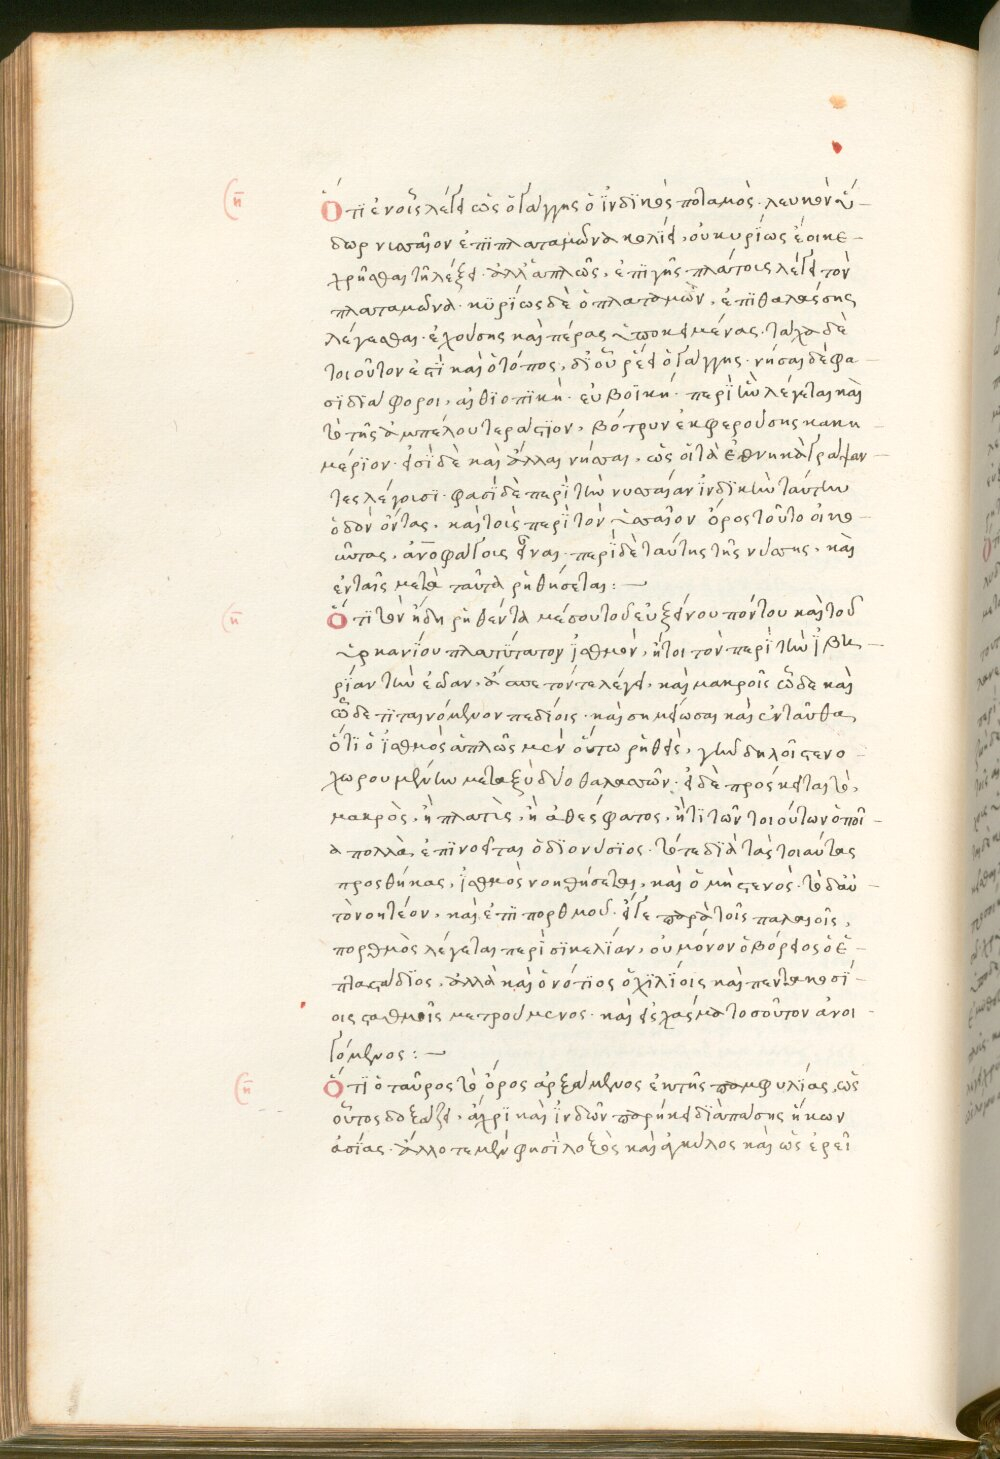 Ὅτι ἐν οἷς λέγει ὡς ὁ Γάγγης ὁ ἰνδικὸς ποταμὸς λευκὸν ὕ-
δωρ νυσσαῖον ἐπὶ πλαταμῶνα κυλίει, οὐ κυρίως ἔοικε
χρῆσθαι τῇ λέξει. ἀλλ' ἁπλῶς, ἐπὶ γῆς πλάτους λέγει τὸν
πλαταμῶνα. κυρίως δὲ ὁ πλαταμὼν, ἐπὶ θαλάσσης
λέγεσθαι ἐχούσης καὶ πέτρας ὑποκειμένας. τάχα δὲ
τοιοῦτον ἐστὶ καὶ ὁ τόπος, δι' οὗ ῥέει ὁ Γάγγης. νῆσαι δὲ φα-
σὶ διάφοροι, αἰθιοπικὴ. εὐβοϊκή. περὶ ἣν λέγεται καὶ
τὸ τῆς ἀμπέλου τεράστιον, βότρυν ἐκφερούσης κακη-
μέριον. εἰσὶ δὲ καὶ ἄλλαι νύσσαι, ὡς οἱ τὰ ἐθνικὰ γράψαν-
τες λέγουσι. φασὶ δὲ περὶ τὴν νυσσαίαν ἰνδικὴν ταύτην
ὁδὸν ὄντας, καὶ τοὺς περὶ τὸν νυσσαῖον ὄρος τοῦτο οἰκο-
ῦντας, ἀνοφάγους εἶναι. περὶ δὲ ταύτης τῆς νύσσης, καὶ
ἐν ταῖς μετὰ ταῦτα ῥηθήσεται: —
Ὅτι τὸν ἤδη ῥηθέντα μέσον τοῦ εὐξείνου πόντου καὶ τοῦ
ὑρκανίου πλατύτατον ἰσθμὸν, ἤτοι τὸν περὶ τὴν ἰβη-
ρίαν τὴν ἑῴαν, ἄσπετόν τε λέγει, καὶ μακροῖς ὧδε καὶ
ὧδε τιταινόμενον πεδίοις. καὶ σημείωσαι καὶ ἐνταῦθα,
ὅτι ὁ ἰσθμὸς ἁπλῶς μὲν οὕτω ῥηθεὶς, γῆν δηλοῖ στενο-
χωρουμένην μεταξὺ δύο θαλασσῶν. εἰ δὲ πρόσκειται τὸ,
μακρὸς, ἢ πλατὺς, ἢ ἀθέσφατος, ἤ τι τῶν τοιούτων ὁποῖ-
α πολλὰ ἐπινοεῖται ὁ διονύσιος. τότε διὰ τὰς τοιαύτας
προσθήκας, ἰσθμὸς νοηθήσεται, καὶ ὁ μὴ στενός. τὸ δ' αὐ-
τὸ νοητέον, καὶ ἐπὶ πορθμοῦ. εἴγε παρὰ τοῖς παλαιοῖς,
πορθμὸς λέγεται περὶ σικελίαν, οὐ μόνον ὁ βόρειος ὁ ἑ-
πταστάδιος, ἀλλὰ καὶ ὁ νότιος ὁ χιλίοις καὶ πεντακοσί-
οις σταθμοῖς μετρούμενος. καὶ εἰς χάσμα τοσοῦτον ἀνοι-
γόμενος: —
Ὅτι ὁ ταῦρος τὸ ὄρος ἀρξάμενος ἐκ τῆς παμφυλίας, ὡς
οὗτος δοξάζει, ἄχρι καὶ ἰνδῶν παρήκει διὰ πάσης ἥκων
ἀσίας. ἄλλοτε μὲν φησὶ λοξὸς καὶ ἀγκύλος καὶ ὡς ἐρεῖ